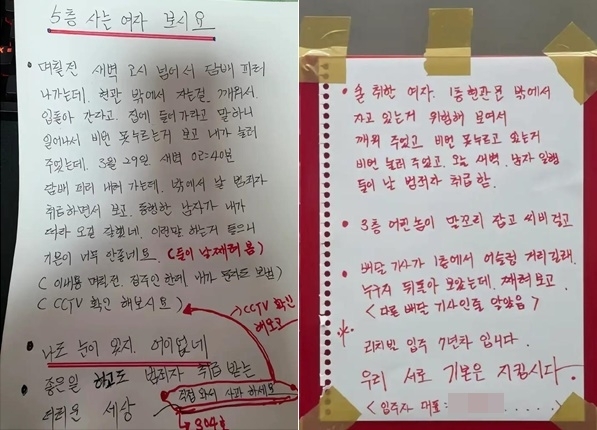 5층 사는 여자 보시요
• 며칠전 새벽 2시 넘어서 담배 피러
나가는데. 현관 밖에서 자는걸. 깨워서.
입돌아 간다고. 집에 들어가라고 말하니
일어나서 비번 못누르는거 보고 내가 눌러
주었는데. 3월 29일 새벽 02:40분
담배 피러 내려 가는데. 밖에서 날 범죄자
취급하면서 보고. 동행한 남자가 내가
따라 오길 잘했네. 이런말 하는거 들으니
기분이 너무 안좋네요. (둘이 날 째려 봄)
(이내용 며칠전. 집주인한데 내가 문자도 보냄)
(CCTV 확인 해보시요)
CCTV 확인
해보고
• 나도 눈이 있지. 어이없네
• 좋은일 하고도 범죄자 취급 받는
더러운 세상
직접 와서 사과 하세요
→ 304호
• 술 취한 여자. 1층현관문 밖에서
자고 있는거 위험해 보여서
깨워 주었고 비번 못누르고 있는거
비번 눌러 주었고. 오늘 새벽. 남자 일행
들이 날 범죄자 취급함.
• 3층 어린놈이 말꼬리 잡고 시비 걸고
• 배달 기사가 1층에서 어슬렁 거리길래.
누구지 뒤돌아 보았는데. 째려보고
<다른 배달 기사인줄 알았음>
※
리치빌 입주 7년차 입니다.
우리 서로 기본은 지킵시다.
<입주자 대표 : ......>